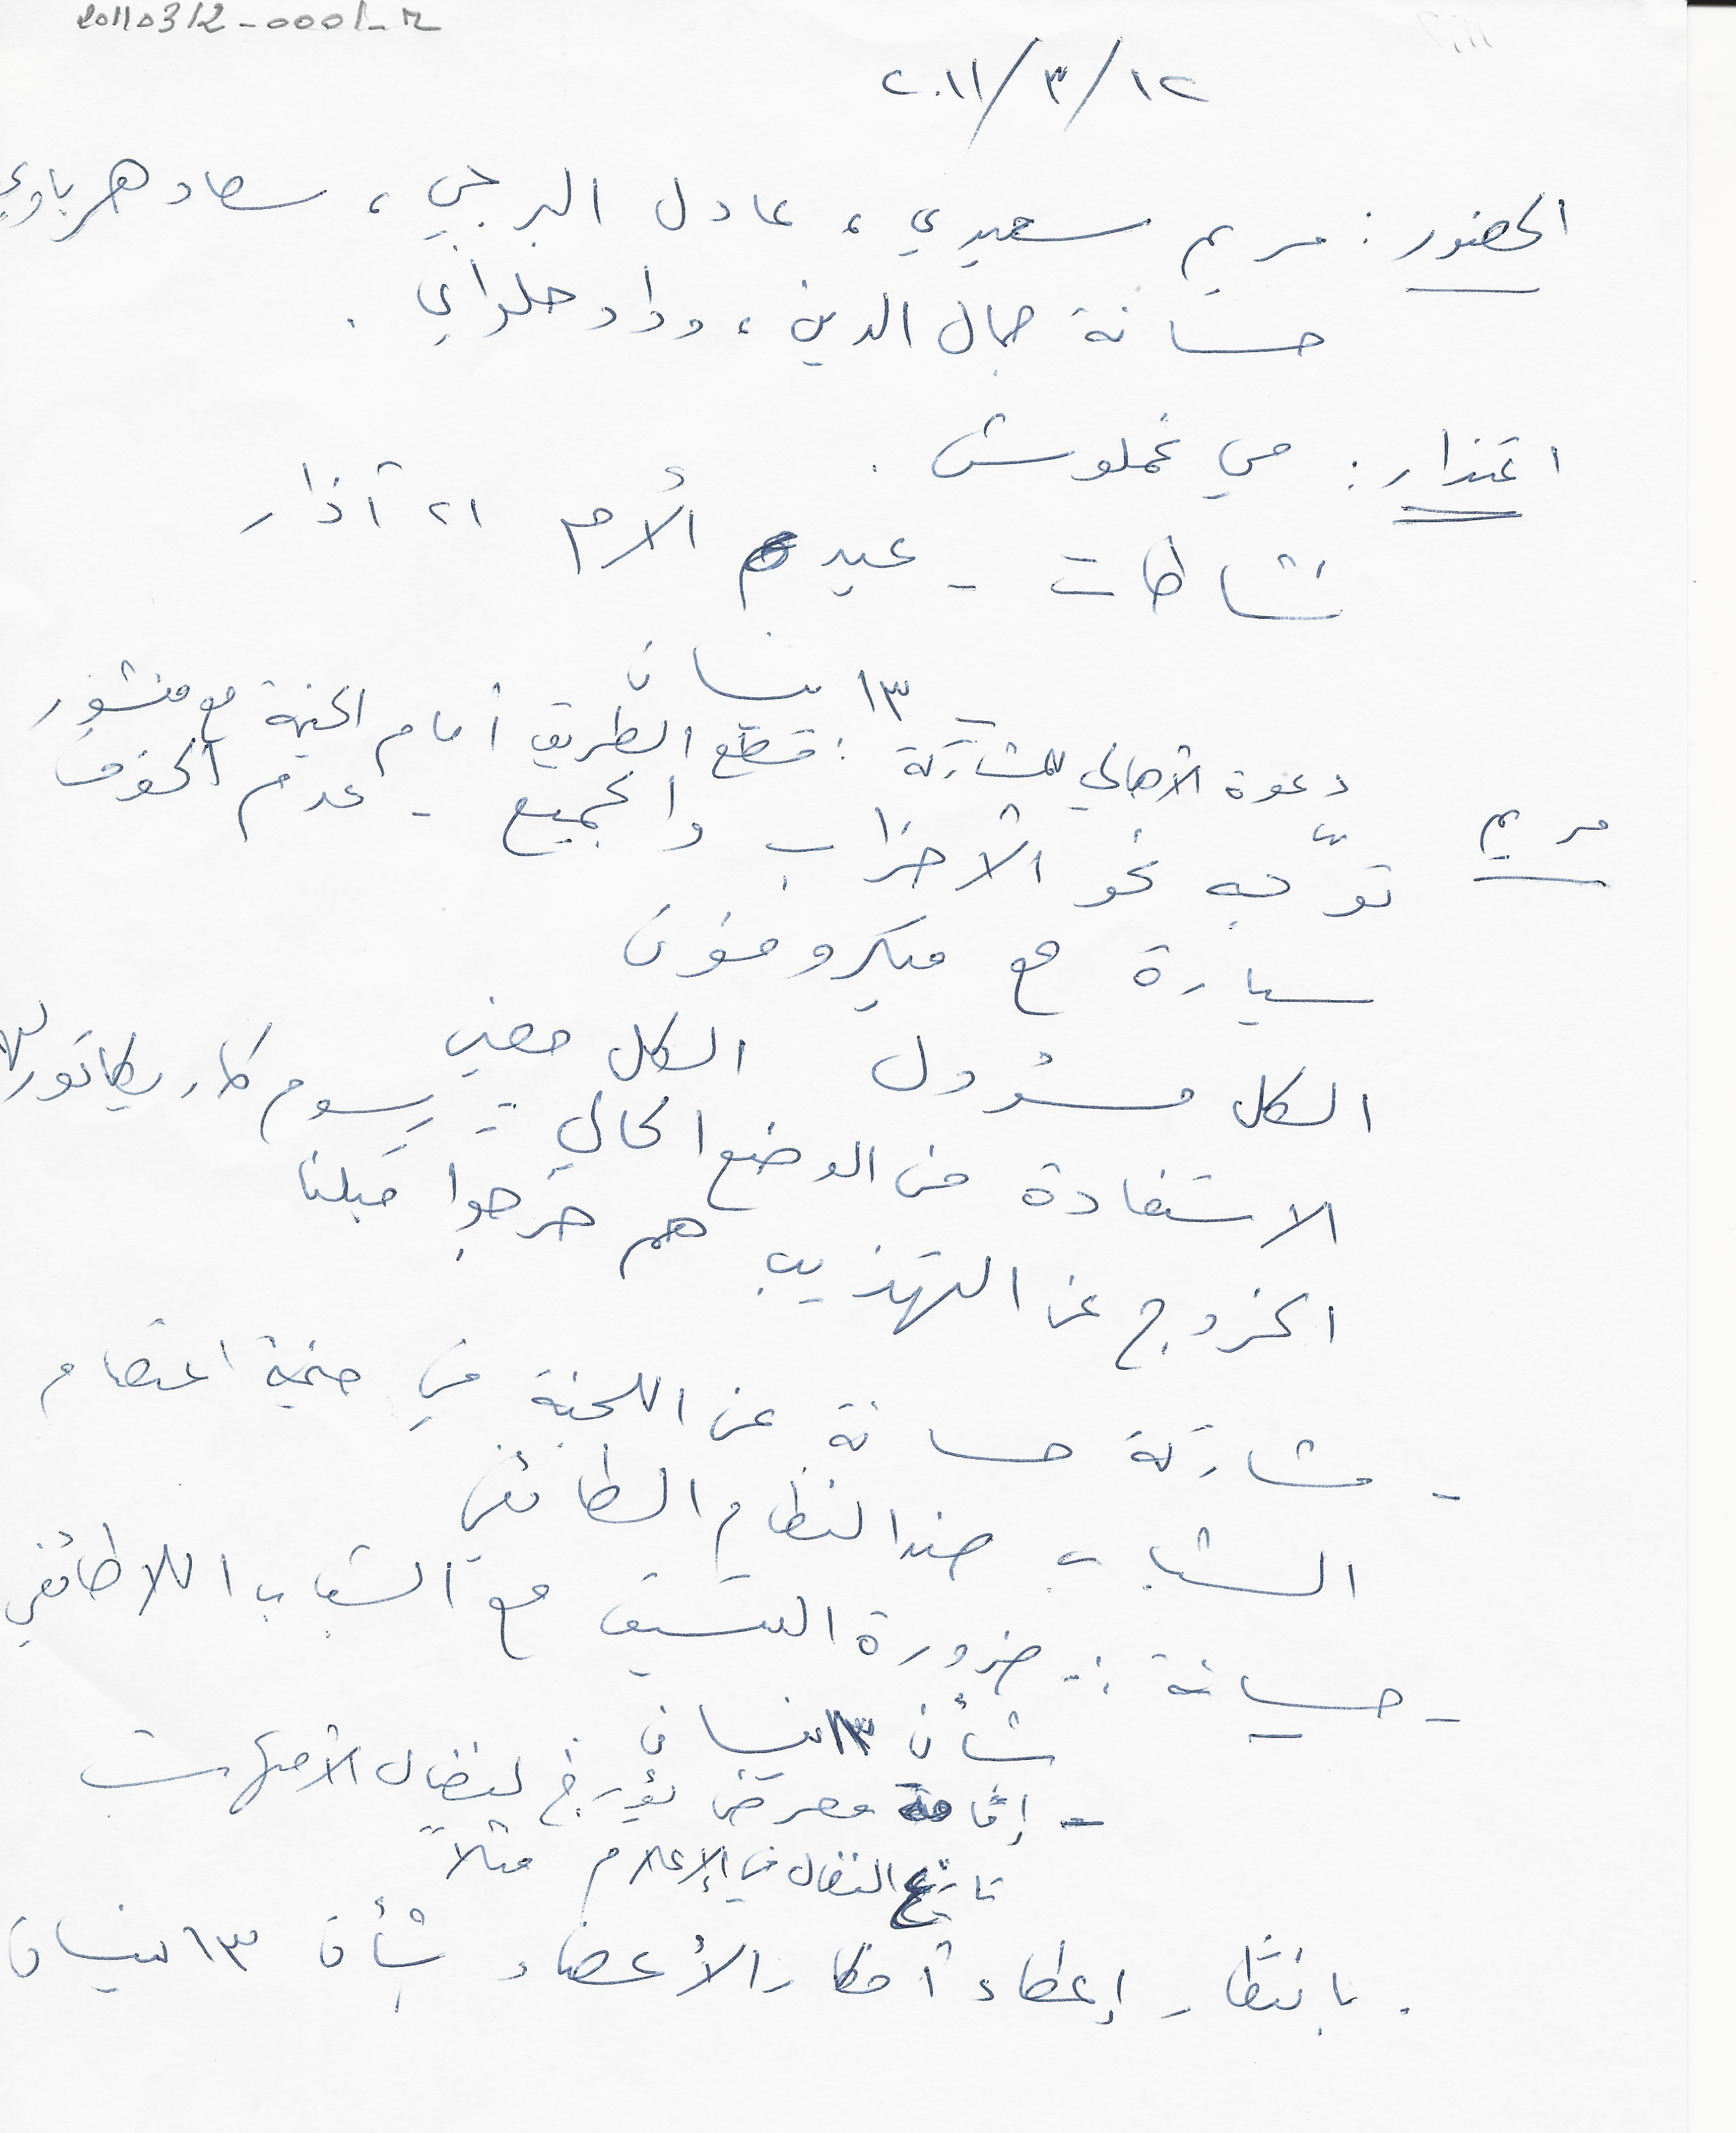 20110312-0001-M
٢٠١١/٣/١٢
الحضور: مريم سعيدي، عادل البرجي، سعاد هرباوي
حسانة جمال الدين، وداد حلواني.
اعتذار: مي غملوش.
نشاطات - عيد الأم ٢١ آذار
- ١٣ نيسان
دعوة الأهالي للمشاركة: قطع الطريق أمام الخيمة مع منشور
مريم توجّه نحو الأحزاب والجميع - عدم الخوف
سيارة مع ميكروفون
الكل مسؤول الكل معني
الاستفادة من الوضع الحالي - رسوم كاريكاتور
الخروج عن التهذيب هم خرجوا قبلنا
- مشاركة حسانة عن اللجنة في خيمة اعتصام
الشباب ضد النظام الطائفي
- حسانة: - ضرورة التنسيق مع الشباب اللاطائفي
بشأن ١٣ نيسان
- إقامة معرض يؤرخ لنضال الأمهات
تاريخ النضال في الإعلام مثلاً
. بانتظار إعطاء أفكار الأعضاء بشأن ١٣ نيسان